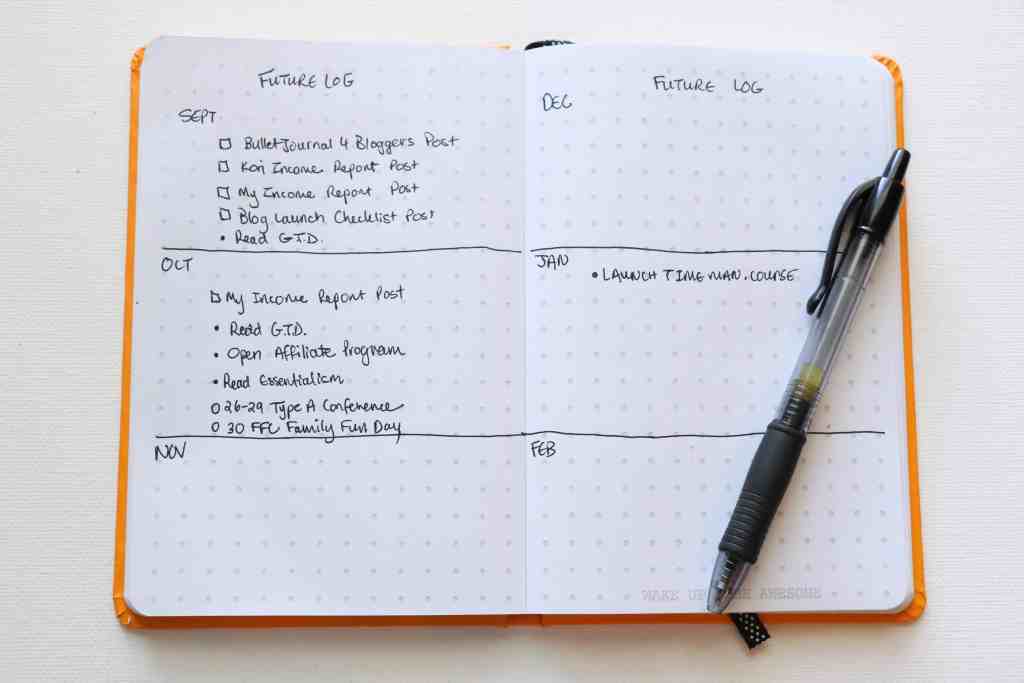 FUTURE LOG
SEPT
Bullet Journal 4 Bloggers Post
Kori Income Report Post
My Income Report Post
Blog Launch Checklist Post
• Read G.T.D.
OCT
My Income Report Post
• Read G.T.D.
• Open Affiliate Program
• Read Essentialism
26-29 Type A Conference
30 FFC Family Fun Day
NOV
FUTURE LOG
DEC
JAN
• LAUNCH TIME MAN. COURSE
FEB
WAKE UP AWESOME